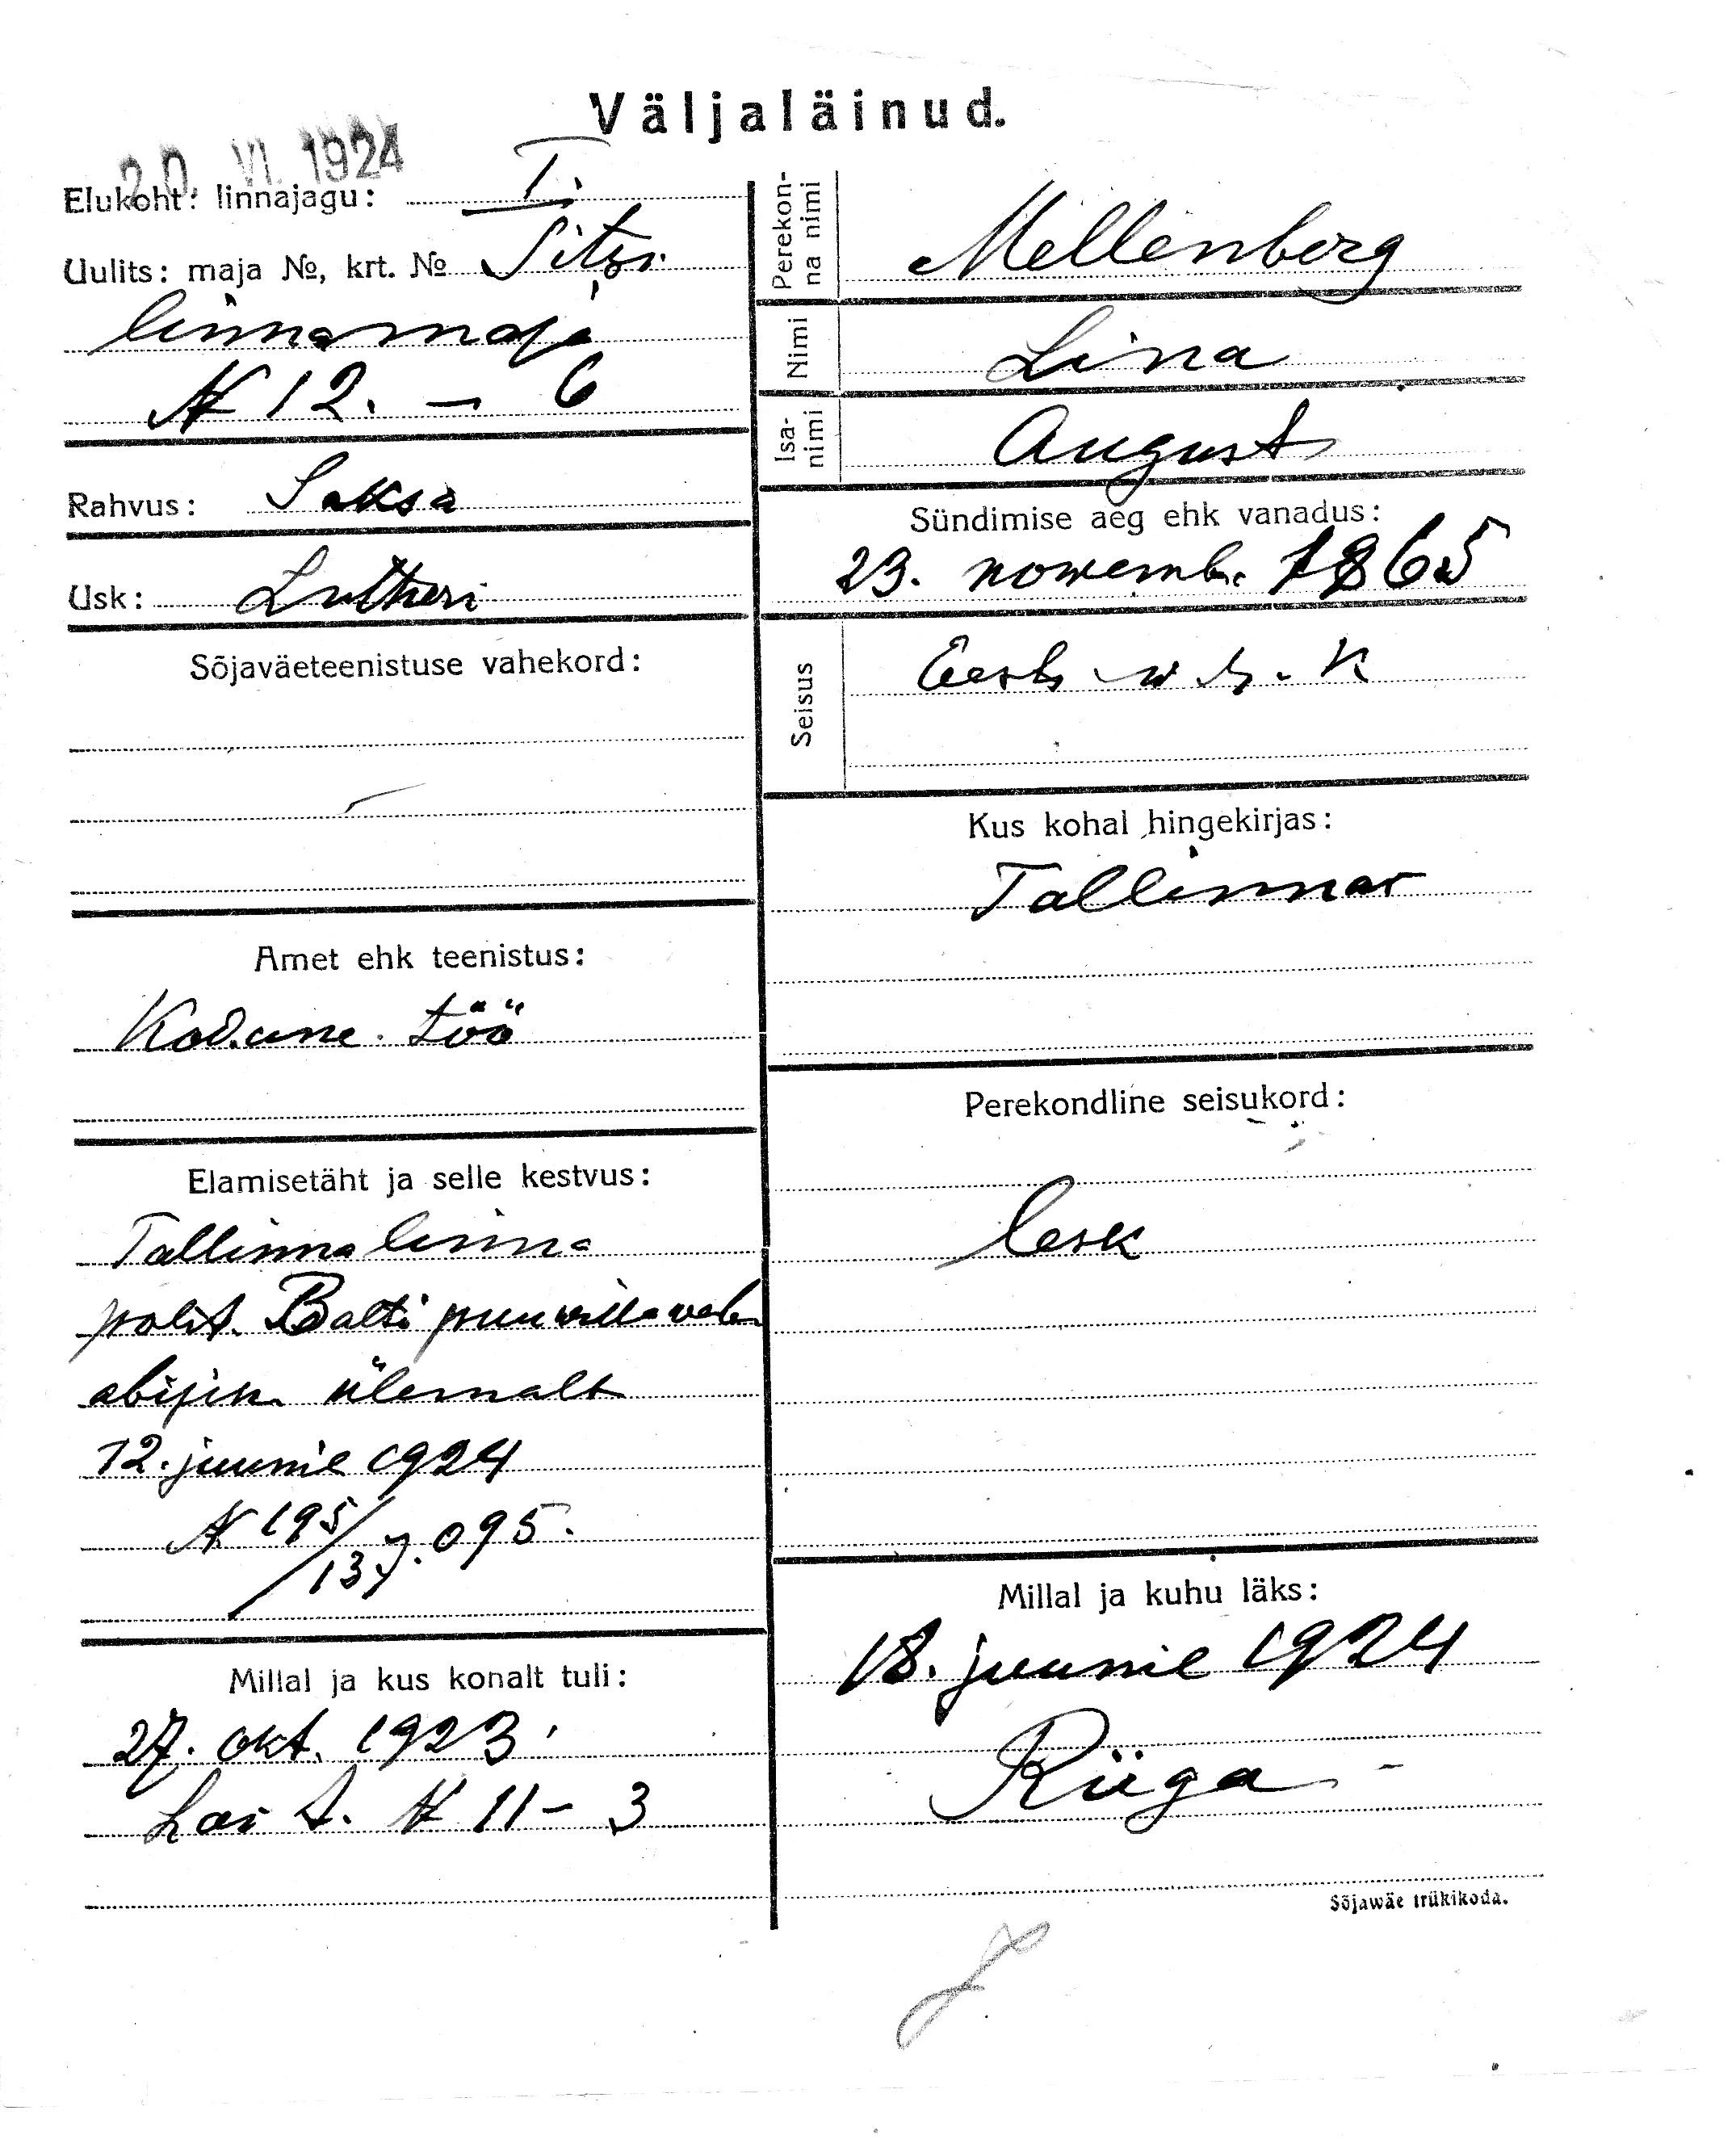 Väljaläinud.
20. VI. 1924
Elukoht: linnajagu: I.
Uulits: maja №, krt. № Sitsi
linnamaja
№ 12. – 6
Rahvus: Saksa
Usk: Lutheri
Sõjaväeteenistuse vahekord:
Amet ehk teenistus:
Kodune töö
Elamisetäht ja selle kestvus:
Tallinna linna
polits. Balti puuvilla vab.
abijsk. ülemalt
12. juunil 1924
№ 195/137.095.
Millal ja kus kohalt tuli:
27. okt. 1923
Lai t. № 11 – 3
Perekonna nimi
Mellenberg
Nimi
Lina
Isanimi
August
Sündimise aeg ehk vanadus:
23. novemb. 1865
Seisus
Eesti w. k.
Kus kohal hingekirjas:
Tallinnas
Perekondline seisukord:
lesk
Millal ja kuhu läks:
18. juunil 1924
Riiga
Sõjawäe trükikoda.